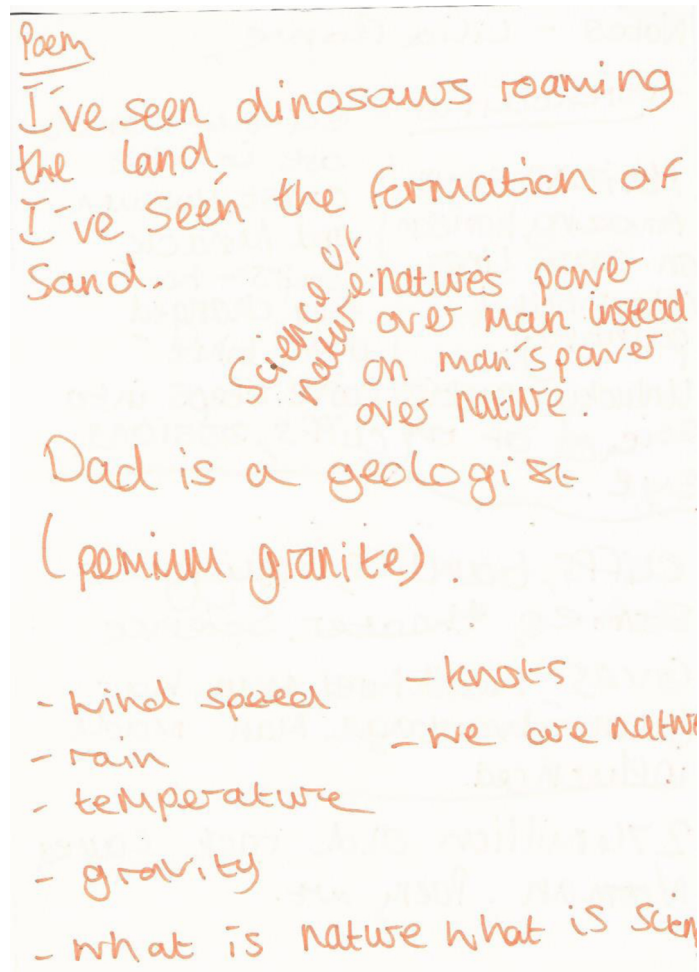 Poem
I've seen dinosaurs roaming
the land
I've seen the formation of
sand.
Science of
nature
natures power
over man instead
on man's power
over nature.
Dad is a geologist
(pemium granite).
- wind speed
- knots
- rain
- we are natu
- temperature
- gravity
- what is nature what is scien